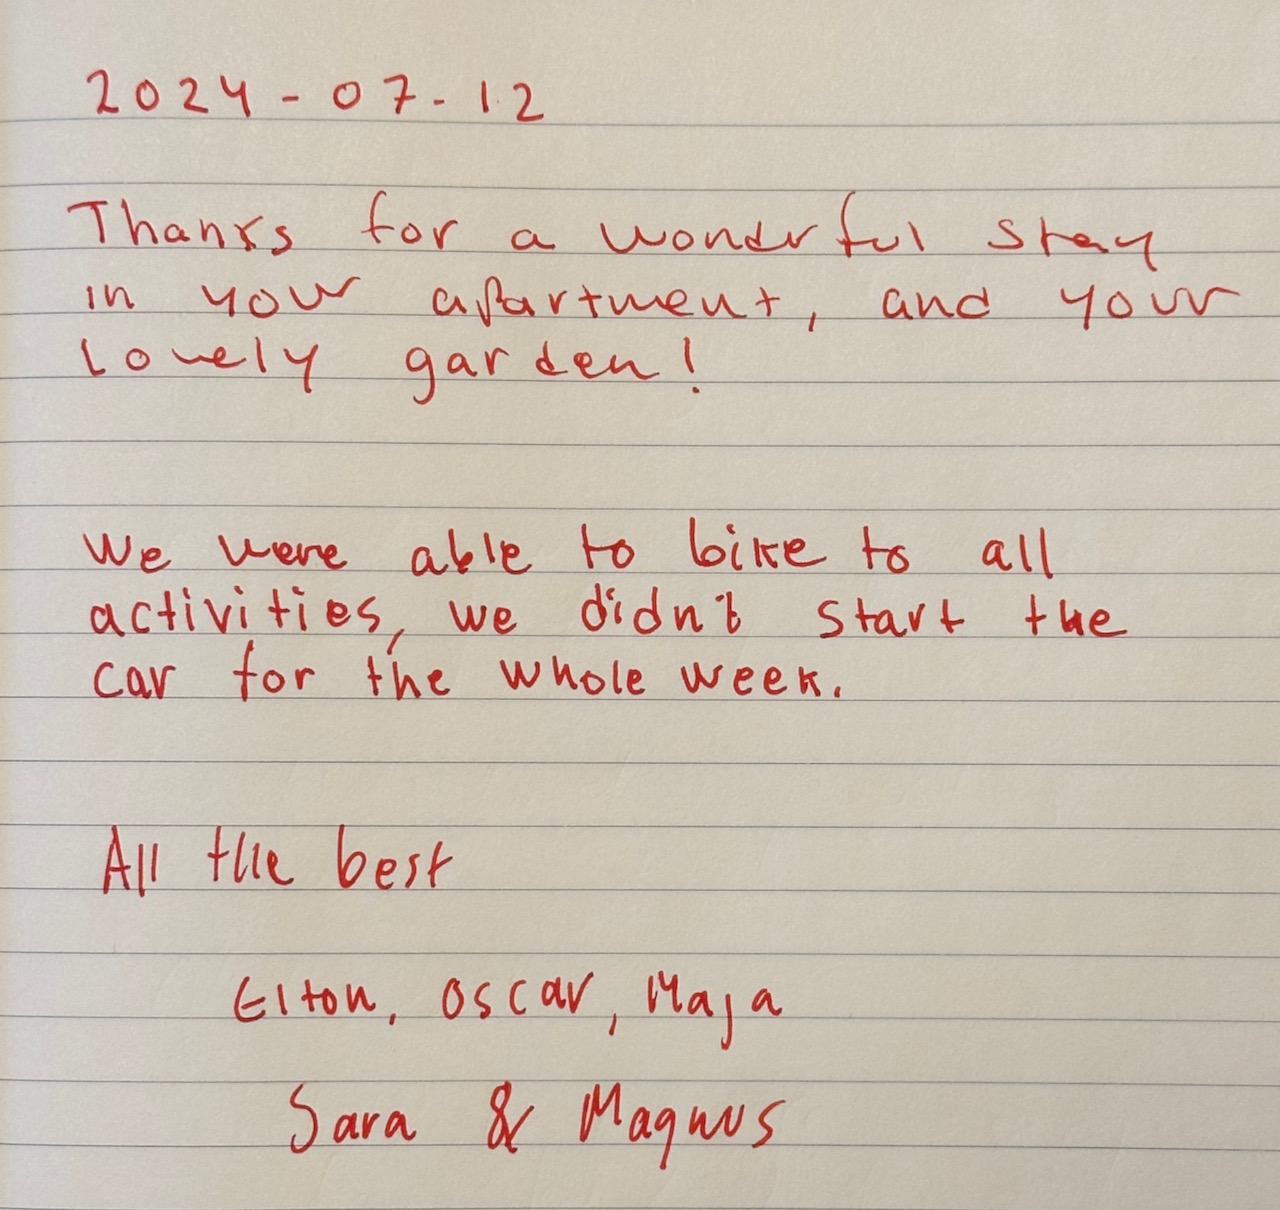 2024-07-12
Thanks for a wondrful stay
in your apartment, and your
Lovely garden!
We were able to bike to all
activities, we didn't start the
car for the whole week.
All the best
Elton, Oscar, Maja
Sara & Magnus